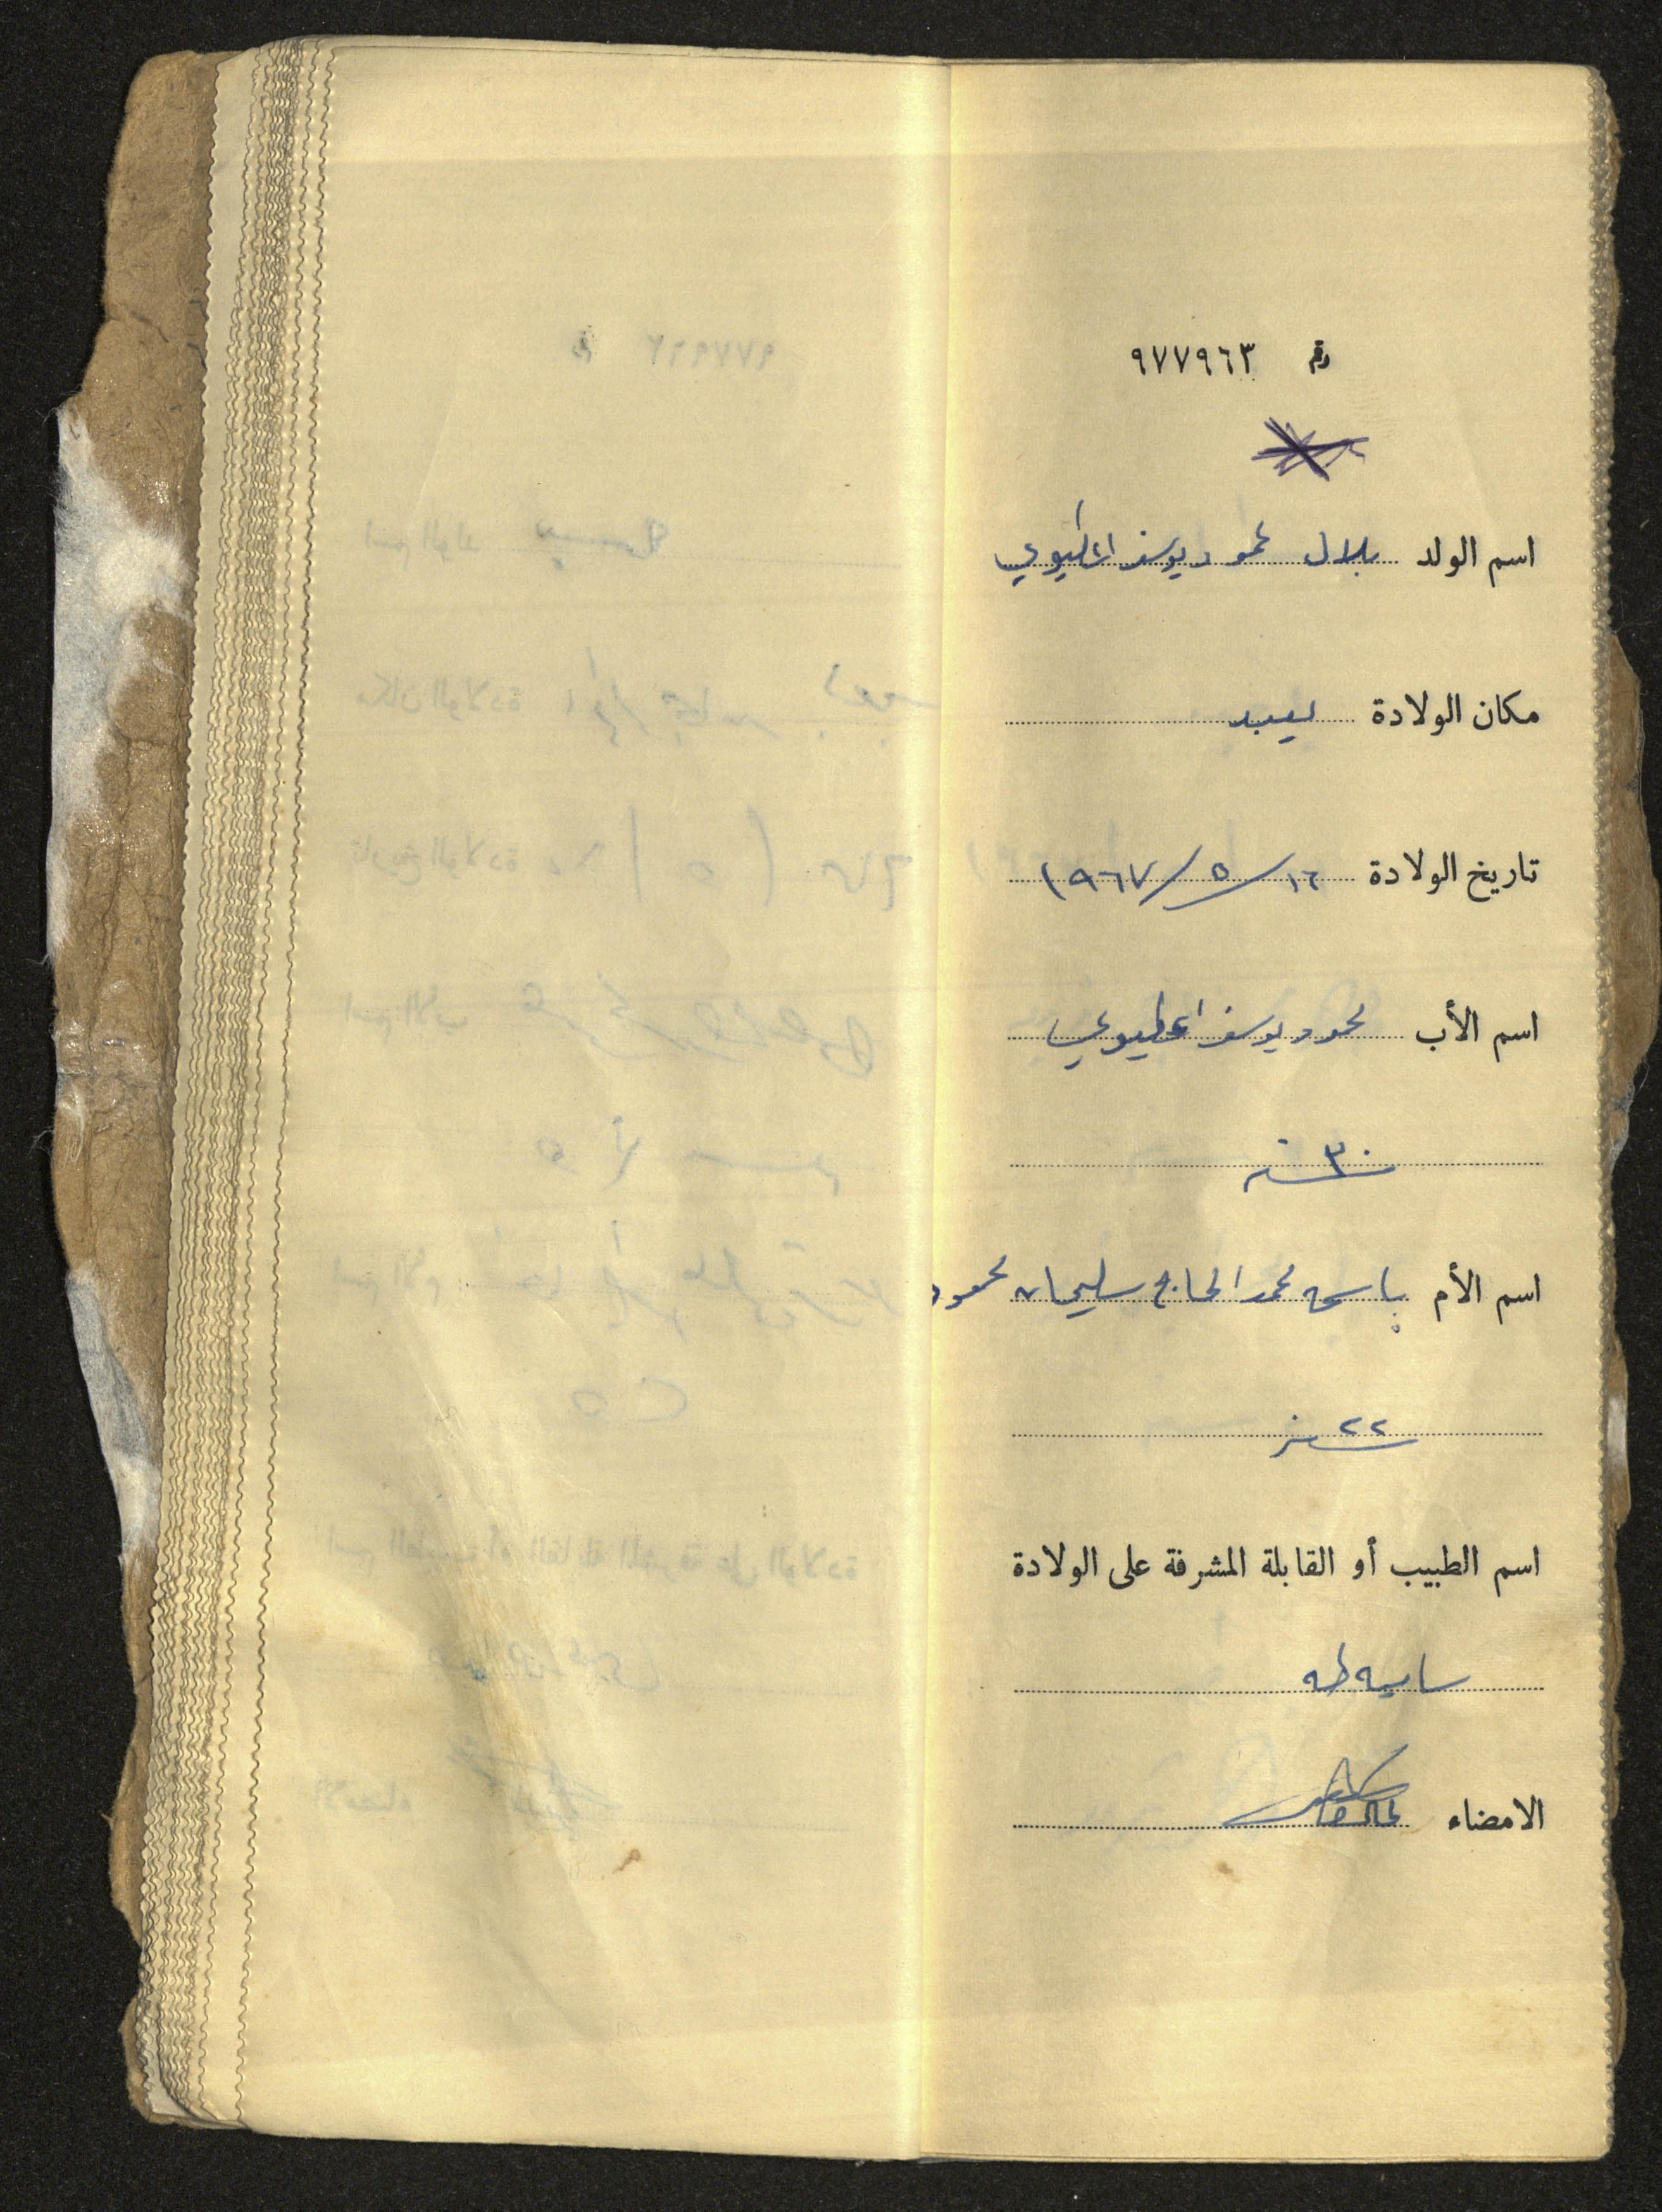 رقم ٩٧٧٩٦٣
اسم الولد بلال محمود يوسف اعطيوي
مكان الولادة يعبد
تاريخ الولادة ١٦/٥/١٩٦٧
اسم الأب محمود يوسف اعطيوي
٣٠ سنة
اسم الأم باسمه محمد الحاج سليمان محمود
٢٢ سنة
اسم الطبيب أو القابلة المشرفة على الولادة
ساميه طه
الامضاء